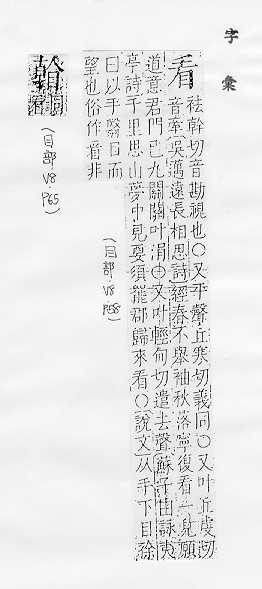 字彙
看
袪幹切音勘視也○又平聲丘寒切義同○又叶丘虔切
音牽(吳邁遠長相思詩)經春不舉袖秋落寧復看一見願
道意君門已九關關叶涓○又叶輕甸切遣去聲(蘇子由詠夷
亭詩千里思山夢中見要須罷郡歸來看○(說文)从手下目徐
曰以手翳目而
望也俗作 非
(目部·V8·P58)
(目部·V8·P65)